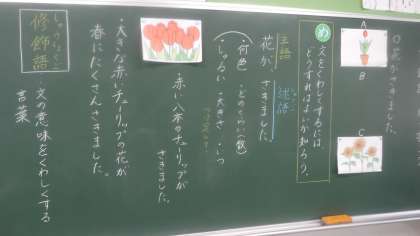 ○花がさきました。
A
B
C
め 文をくわしくするには、
どうすればよいか知ろう。
主語
述語
花が、さきました。
・何色
・どのくらい(数)
・しゅるい
・大きさ
・いつ
・赤い八本のチューリップが
さきました。
・大きな赤いチューリップの花が
春にたくさんさきました。
しゅうしょくご
修飾語
・文の意味をくわしくする
言葉